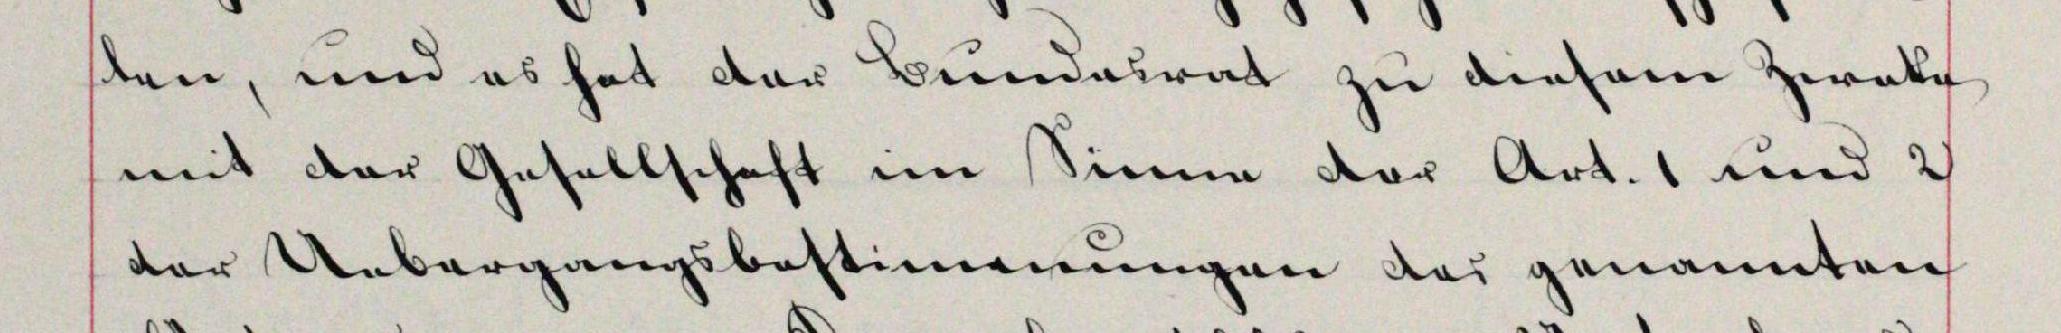 den, und es hat der Bundesrat zu diesem Zweke
mit der Gesellschaft im Sinne der Art. 1 und 2
der Uebergangsbestimmungen des genannten